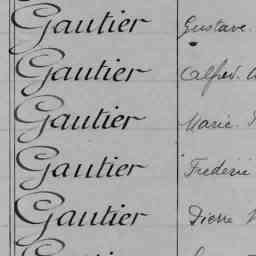 Gautier Gustave.
Gautier Alfred.
Gautier Marie.
Gautier Frédéric
Gautier Pierre